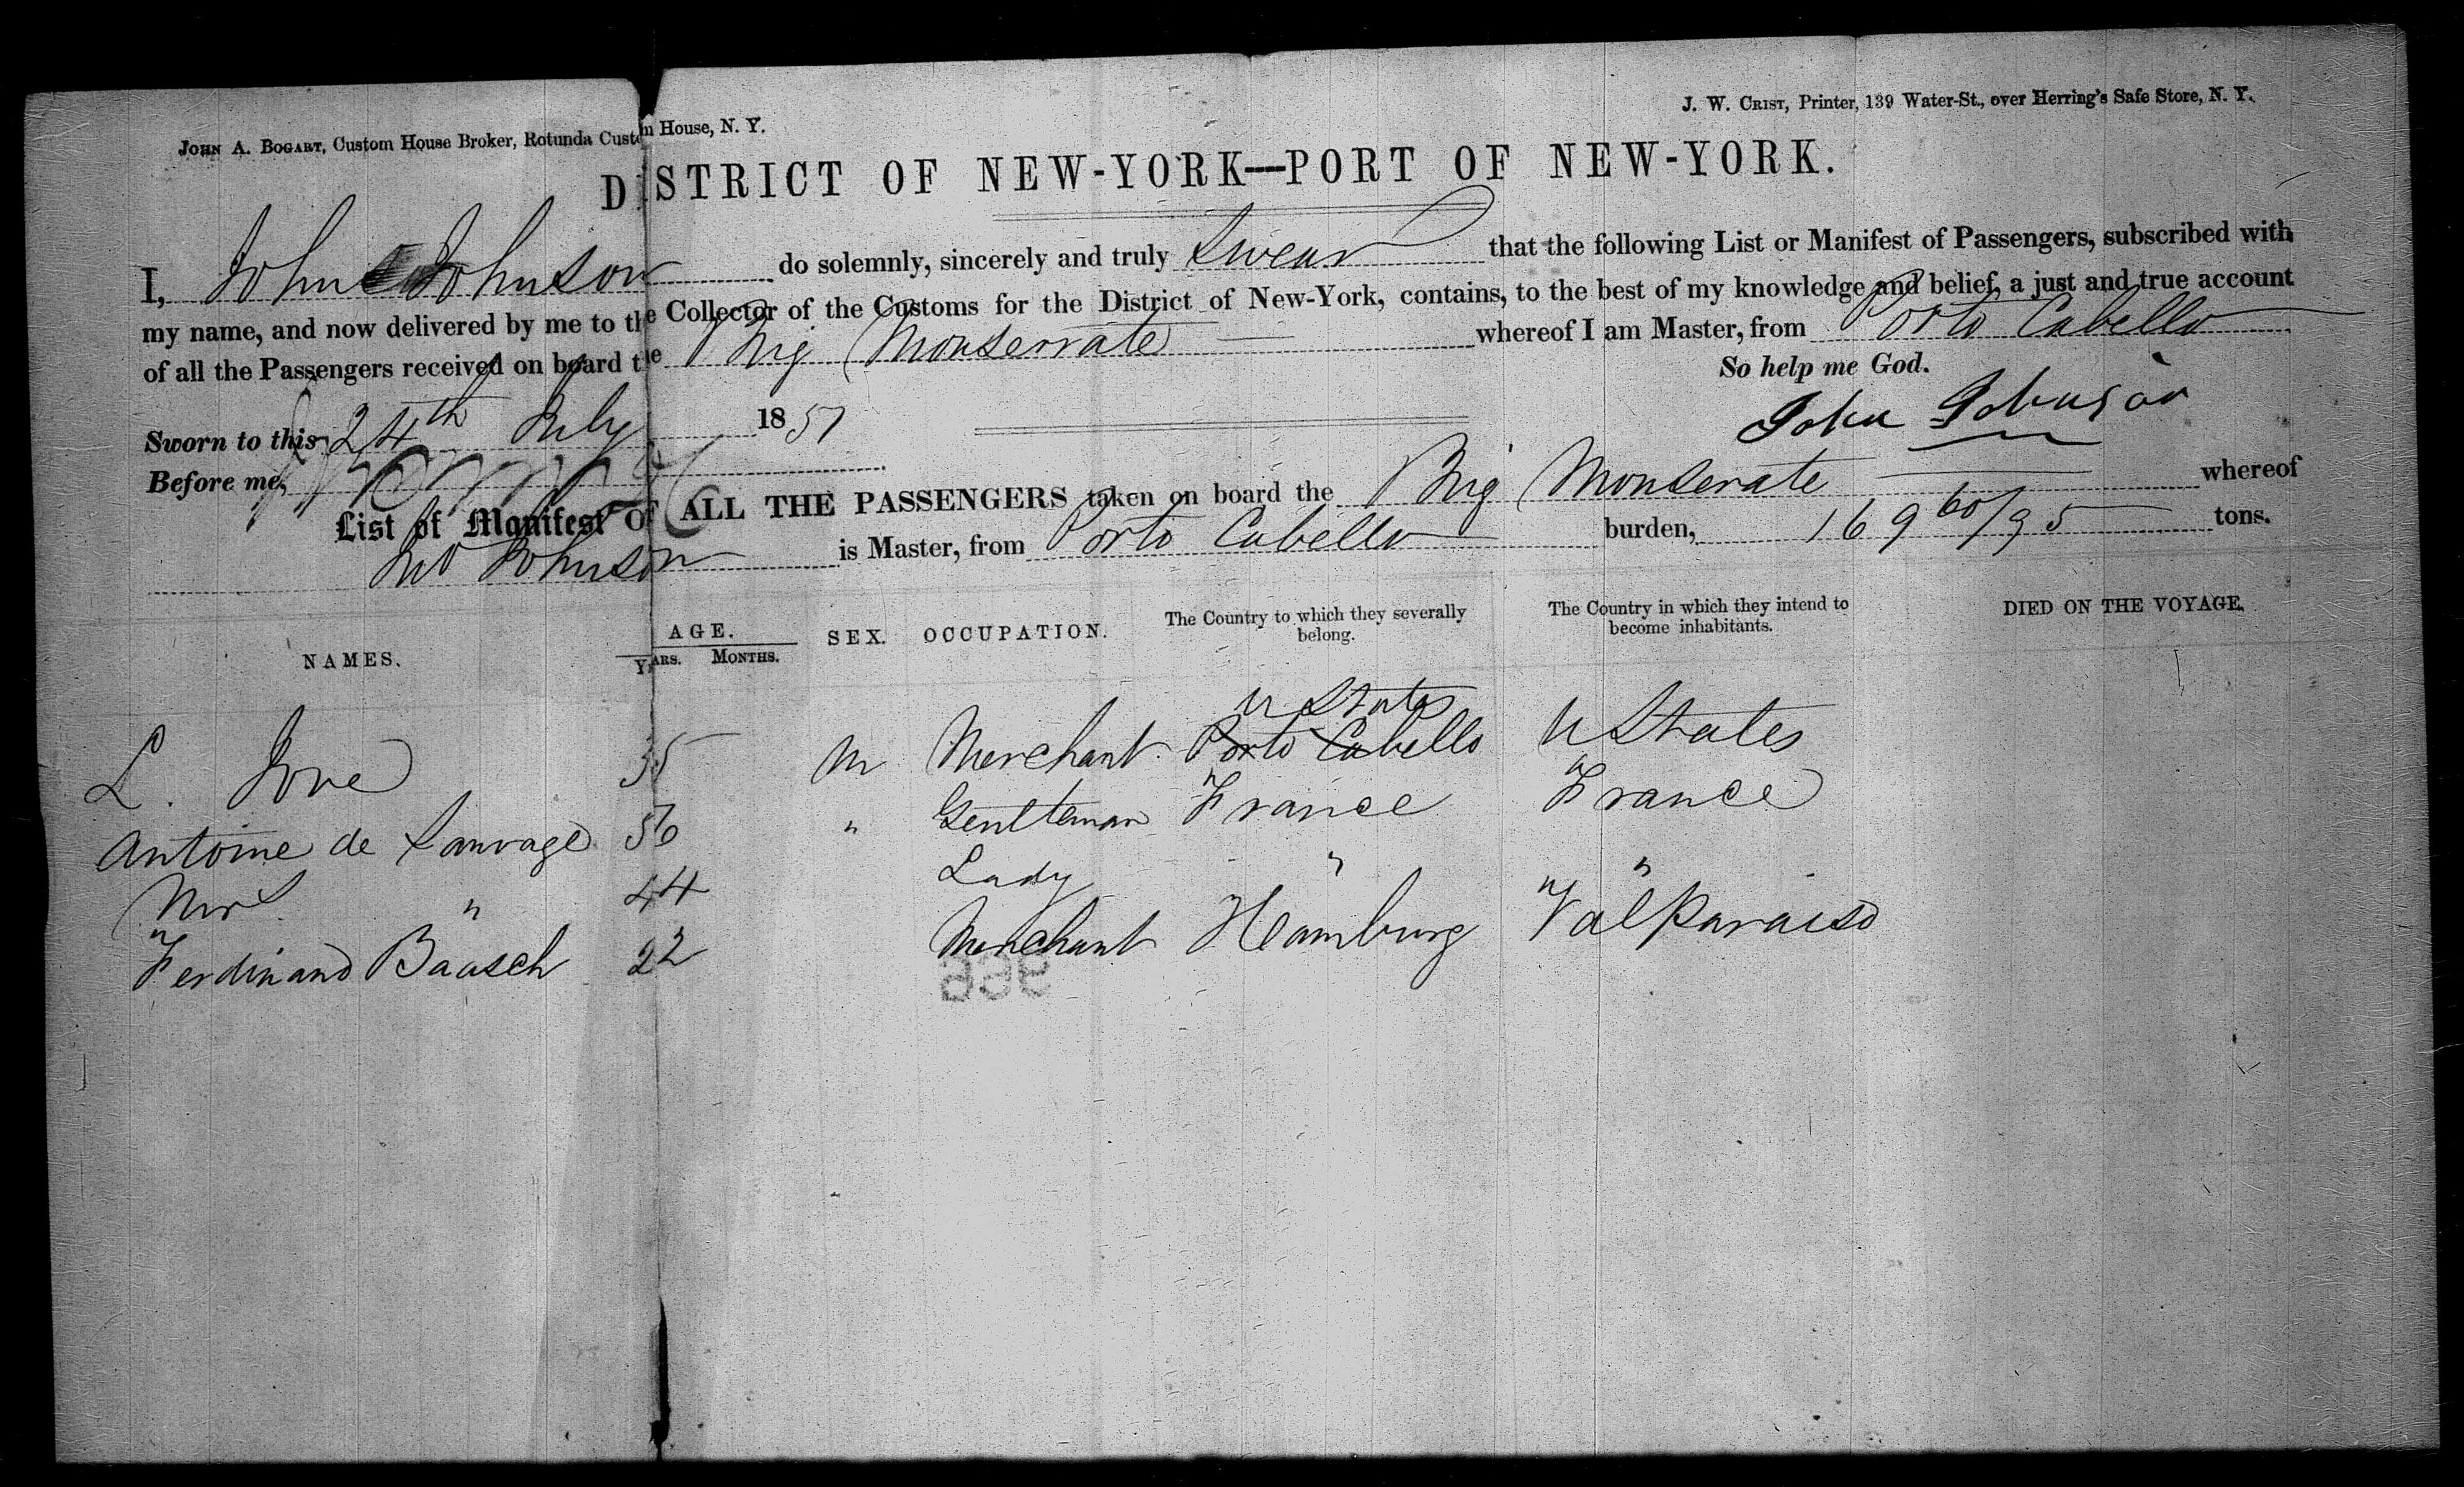 JOHN A. BOGART, Custom House Broker, Rotunda Custom House, N. Y.
J. W. CRIST, Printer, 139 Water-St., over Herring's Safe Store, N. Y.
DISTRICT OF NEW-YORK—PORT OF NEW-YORK.
I, John Johnson do solemnly, sincerely and truly Swear that the following List or Manifest of Passengers, subscribed with
my name, and now delivered by me to the Collector of the Customs for the District of New-York, contains, to the best of my knowledge and belief, a just and true account
of all the Passengers received on board the Brig Monserrate whereof I am Master, from Porto Cabello
So help me God.
Sworn to this 24th July 1851
John Johnson
Before me,
List of Manifest OF ALL THE PASSENGERS taken on board the Brig Monserate whereof
Jno Johnson is Master, from Porto Cabello burden, 169 60/95 tons.
NAMES. AGE. SEX. OCCUPATION. The Country to which they severally belong. The Country in which they intend to become inhabitants. DIED ON THE VOYAGE.
YEARS. MONTHS.
U States
L. Jove 35 M Merchant Porto Cabello U States
Antoine de Sauvage 56 " Gentleman France France
Mrs " 44 Lady " "
Ferdinand Baasch 22 Merchant Hamburg Valparaiso